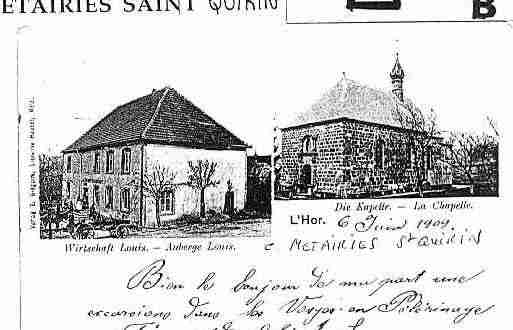 METAIRIES SAINT QUIRIN
B
Wirtschaft Louis. — Auberge Louis.
Die Kapelle. — La Chapelle.
L'Hor. 6 Juin 1909.
METAIRIES St QUIRIN
Bien le bonjour de ma part une
excursions dans les Vosges en Pélérinage